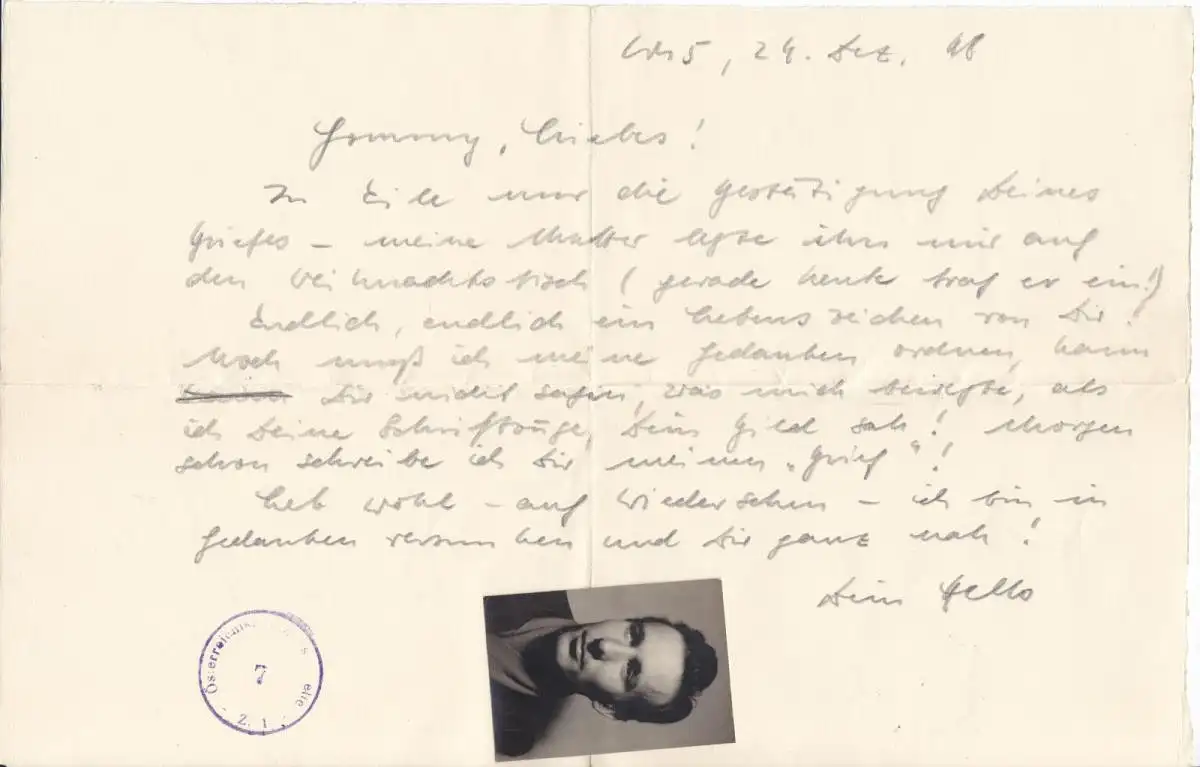 24. Dez. 48
Liebes!
In Eile nur die Bestätigung Deines
Briefes – meine Mutter legte ihn mir auf
den Weihnachtstisch (gerade heute traf er ein!)
Endlich, endlich ein Lebenszeichen von Dir!
Noch muß ich meine Gedanken ordnen, kann
Dir nicht sagen, was mich bewegte, als
ich Deine Schriftzüge, Dein Bild sah! Morgen
schon schreibe ich Dir meinen „Brief“!
Leb wohl – auf Wiedersehen – ich bin in
Gedanken versunken und Dir ganz nah!
Dein Hello
7
Z. 1